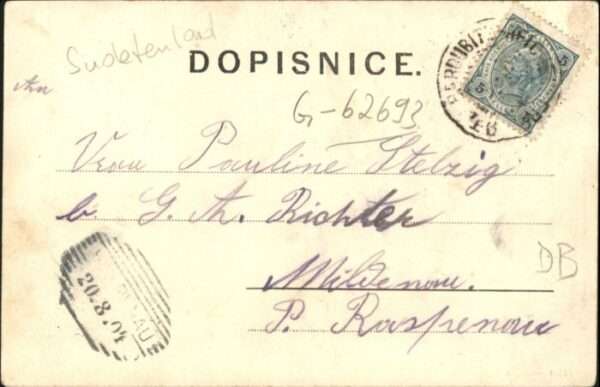 Sudetenland
DOPISNICE.
An
G-62693
5 5
Frau Pauline Stelzig
b. G. A. Richter
Mildenau.
P. Raspenau
DB
20.8.04